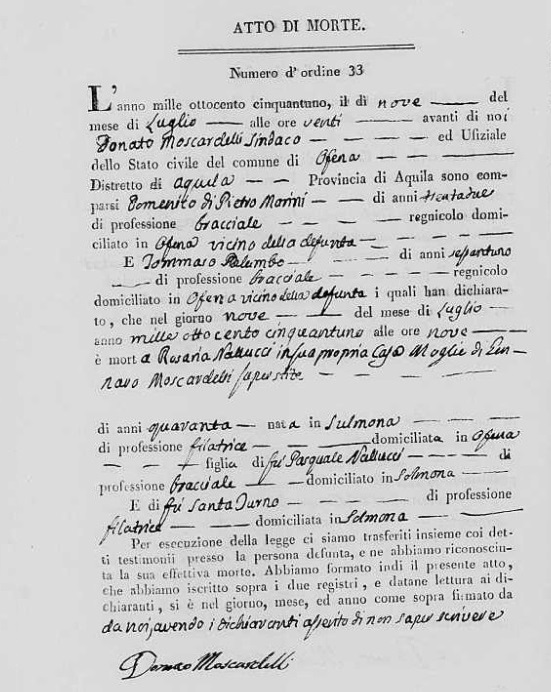 ATTO DI MORTE.
Numero d'ordine 33
L'anno mille ottocento cinquantuno, il dì nove — del
mese di Luglio — alle ore venti — avanti di noi
Donato Moscardelli Sindaco — — — ed Ufiziale
dello Stato civile del comune di Ofena — — —
Distretto di Aquila — — Provincia di Aquila sono com-
parsi Domenico di Pietro Marini — di anni trentadue
di professione bracciale — — — — regnicolo domi-
ciliato in Ofena vicino della defunta — — — — —
E Tommaso Palumbo — — — di anni settantuno
— di professione bracciale — — — — regnicolo
domiciliato in Ofena vicino della defunta i quali han dichiara-
to, che nel giorno nove — — del mese di Luglio —
anno mille ottocento cinquantuno alle ore nove —
è mort a Rosaria Vallucci in sua propria Casa Moglie di Gen-
naro Moscardelli superstite — — — — —
di anni quaranta — nata in Sulmona — — — —
di professione filatrice — — — domiciliata in Ofena
— — — figlia di fù Pasquale Vallucci — — — di
professione bracciale — — domiciliato in Solmona —
E di fù Santa Turno — — — — di professione
filatrice — — domiciliata in Solmona — — —
Per esecuzione della legge ci siamo trasferiti insieme coi det-
ti testimonii presso la persona defunta, e ne abbiamo riconosciu-
ta la sua effettiva morte. Abbiamo formato indi il presente atto,
che abbiamo iscritto sopra i due registri, e datane lettura ai di-
chiaranti, si è nel giorno, mese, ed anno come sopra firmato da
da noi, avendo i dichiaranti asserito di non saper scrivere
Donato Moscardelli